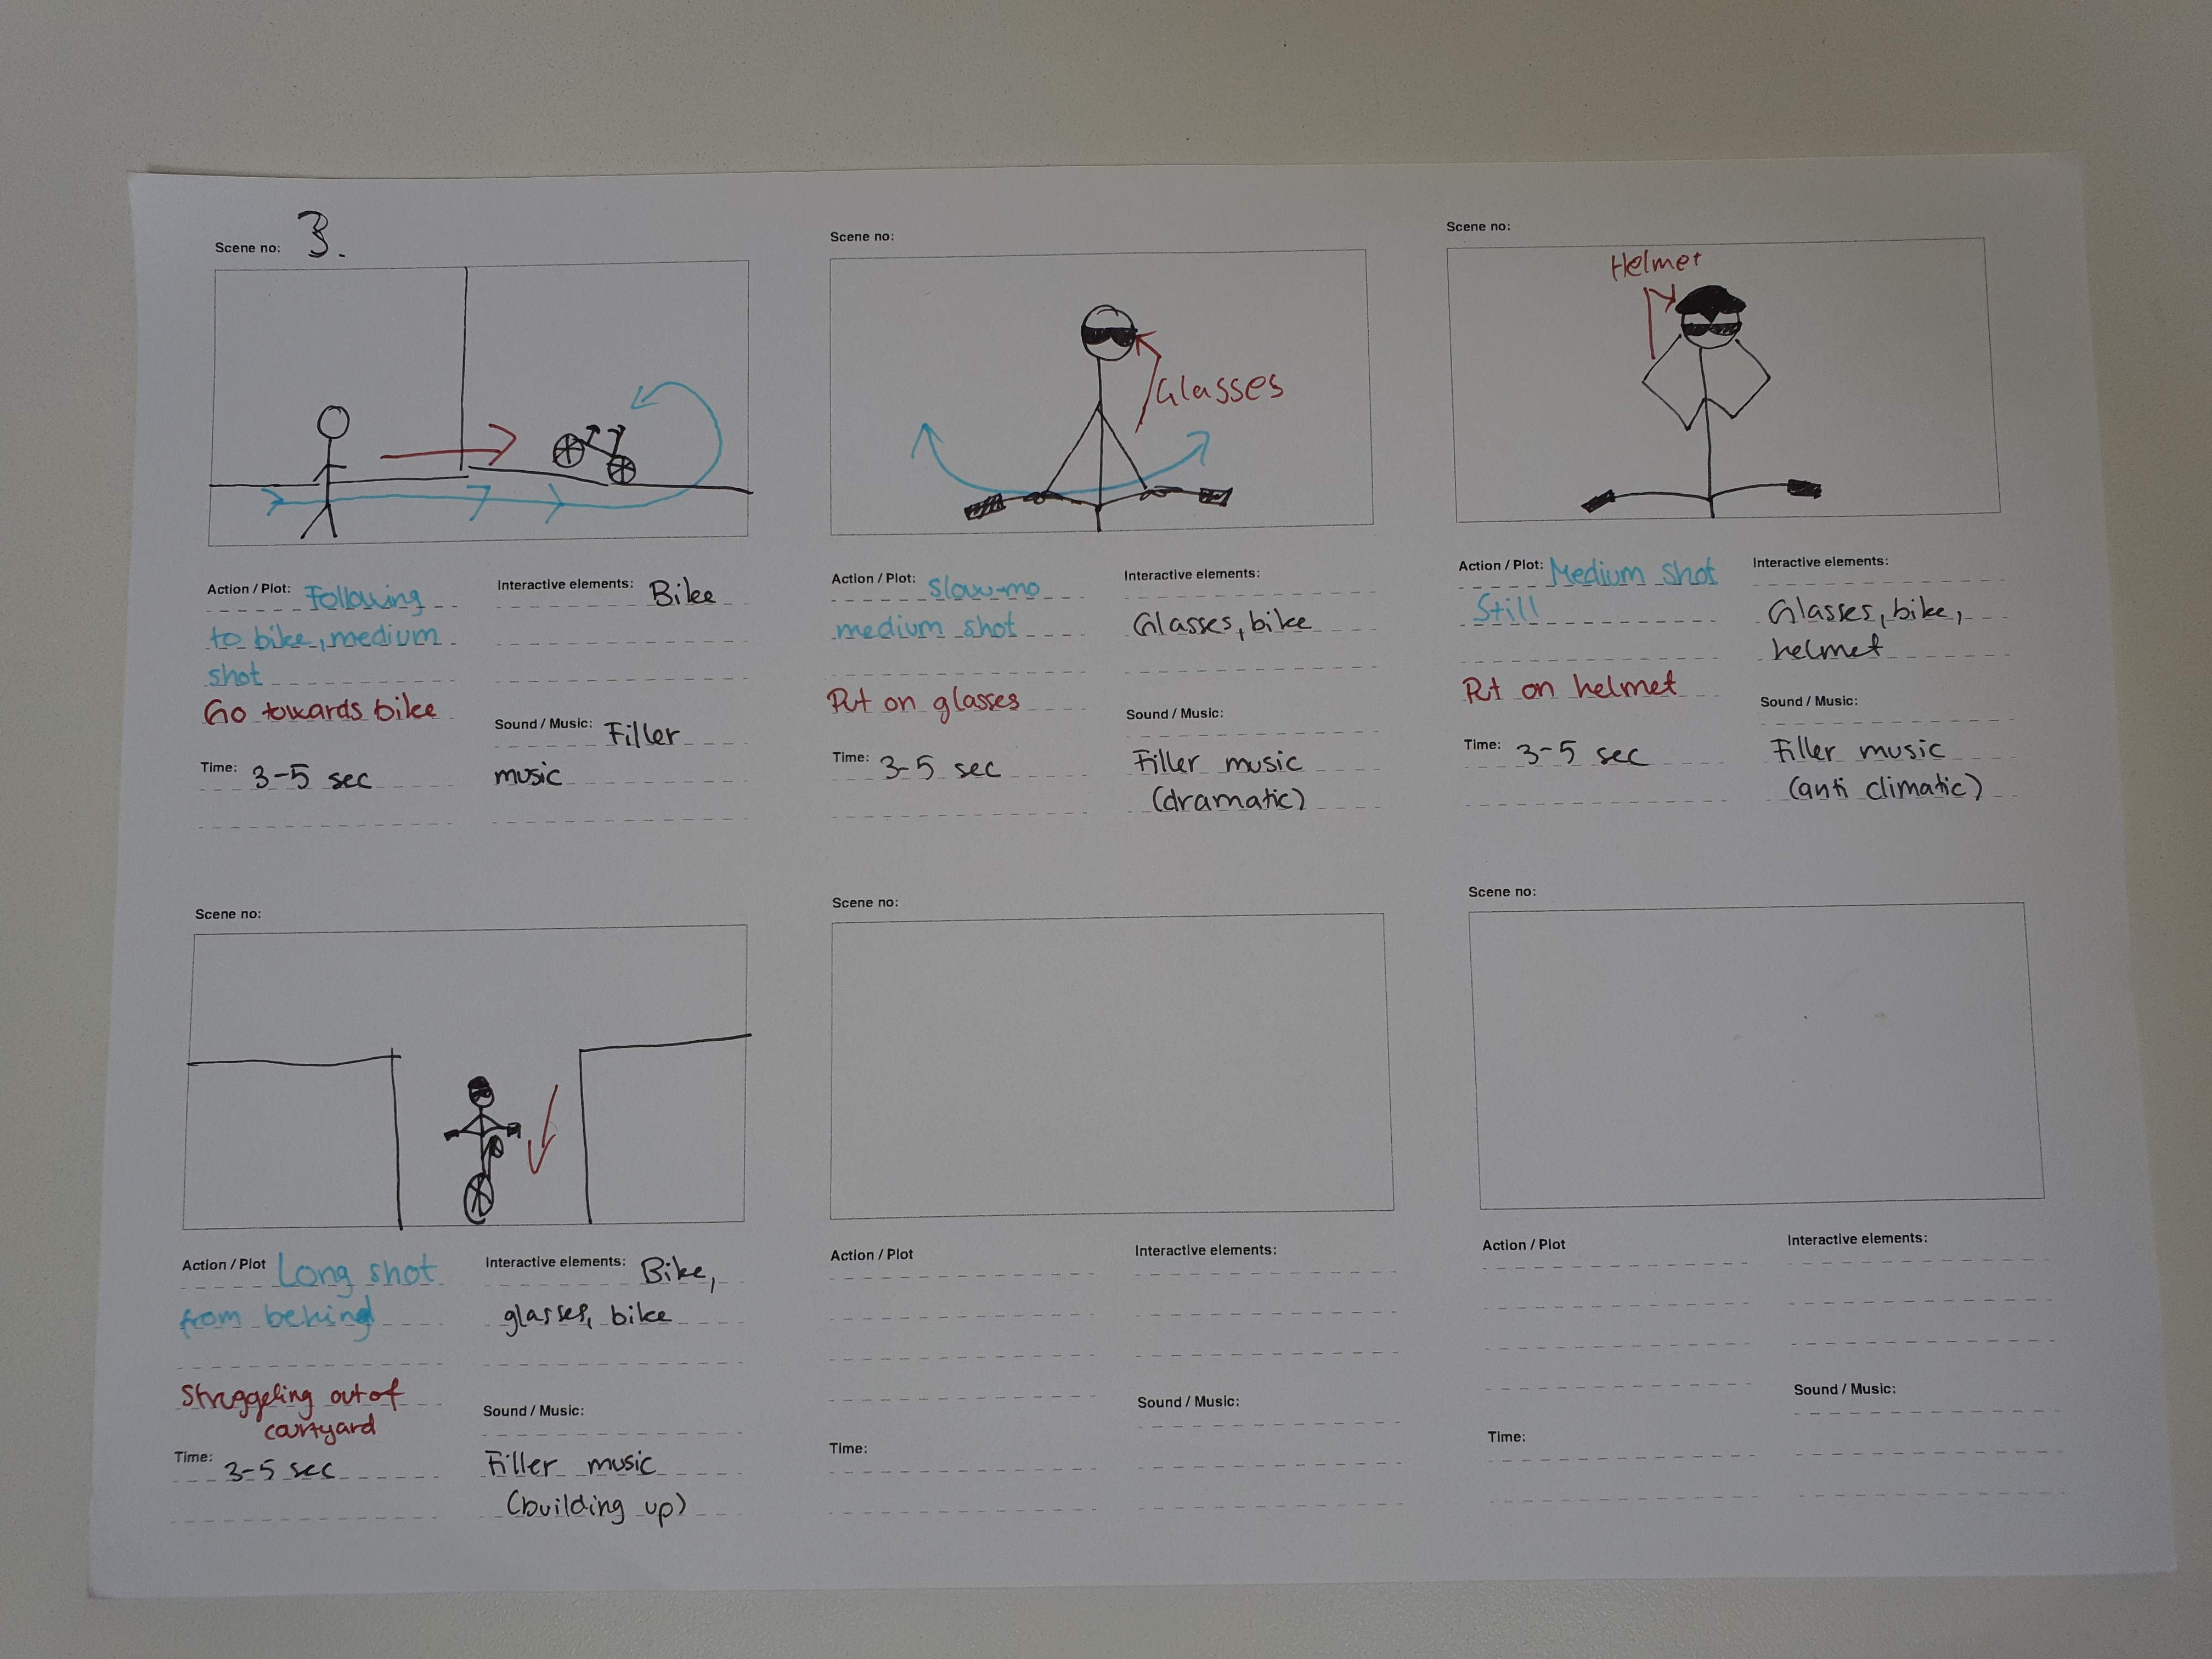 Scene no: 3.
Action / Plot: Following
to bike, medium
shot
Go towards bike
Time: 3-5 sec
Interactive elements: Bike
Sound / Music: Filler
music
Scene no:
Glasses
Action / Plot: Slow-mo
medium shot
Put on glasses
Time: 3-5 sec
Interactive elements:
Glasses, bike
Sound / Music:
Filler music
(dramatic)
Scene no:
Helmet
Action / Plot: Medium shot
Still
Put on helmet
Time: 3-5 sec
Interactive elements:
Glasses, bike,
helmet
Sound / Music:
Filler music
(anti climatic)
Scene no:
Action / Plot Long shot
from behind
Struggeling out of
courtyard
Time: 3-5 sec
Interactive elements: Bike,
glasses, bike
Sound / Music:
Filler music
(building up)
Scene no:
Action / Plot
Time:
Interactive elements:
Sound / Music:
Scene no:
Action / Plot
Time:
Interactive elements:
Sound / Music: